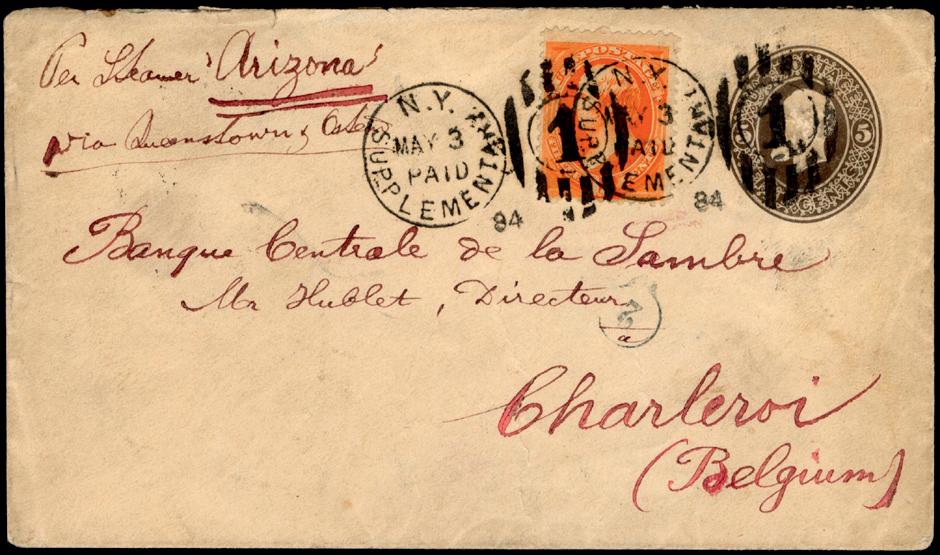 Per Steamer "Arizona"
via Queenstown & Ostende
N.Y. SUPPLEMENTARY
MAY 3
PAID
84
1
N.Y. SUPPLEMENTARY
MAY 3
PAID
84
1
POSTAGE
5 CENTS 5
Banque Centrale de la Sambre
Mr Hublet, Directeur
Charleroi
(Belgium)